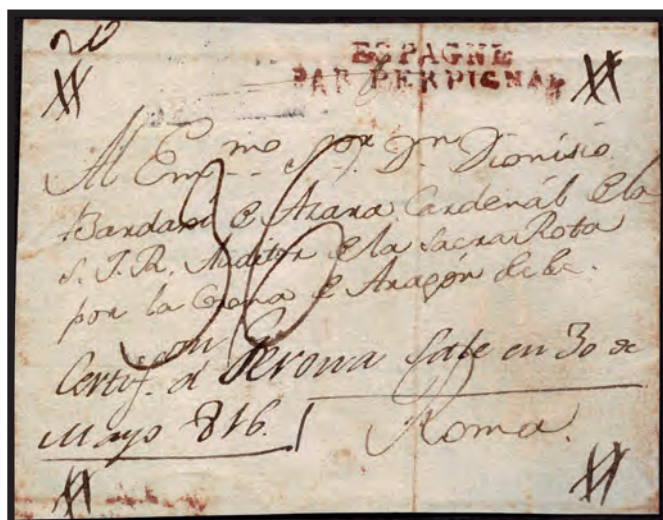 20
ESPAGNE
PAR PERPIGNAN
Al Em.mo S.or D.n Dionisio
Bardaxi e Azara Cardenál e la
S. I. R. Auditor e la Sacra Rota
por la Corona e Aragón &c &c.
36
Certif.on d Gerona sale en 30 de
Mayo 816.
Roma.